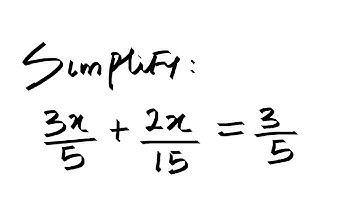 Simplify:
3x/5 + 2x/15 = 3/5